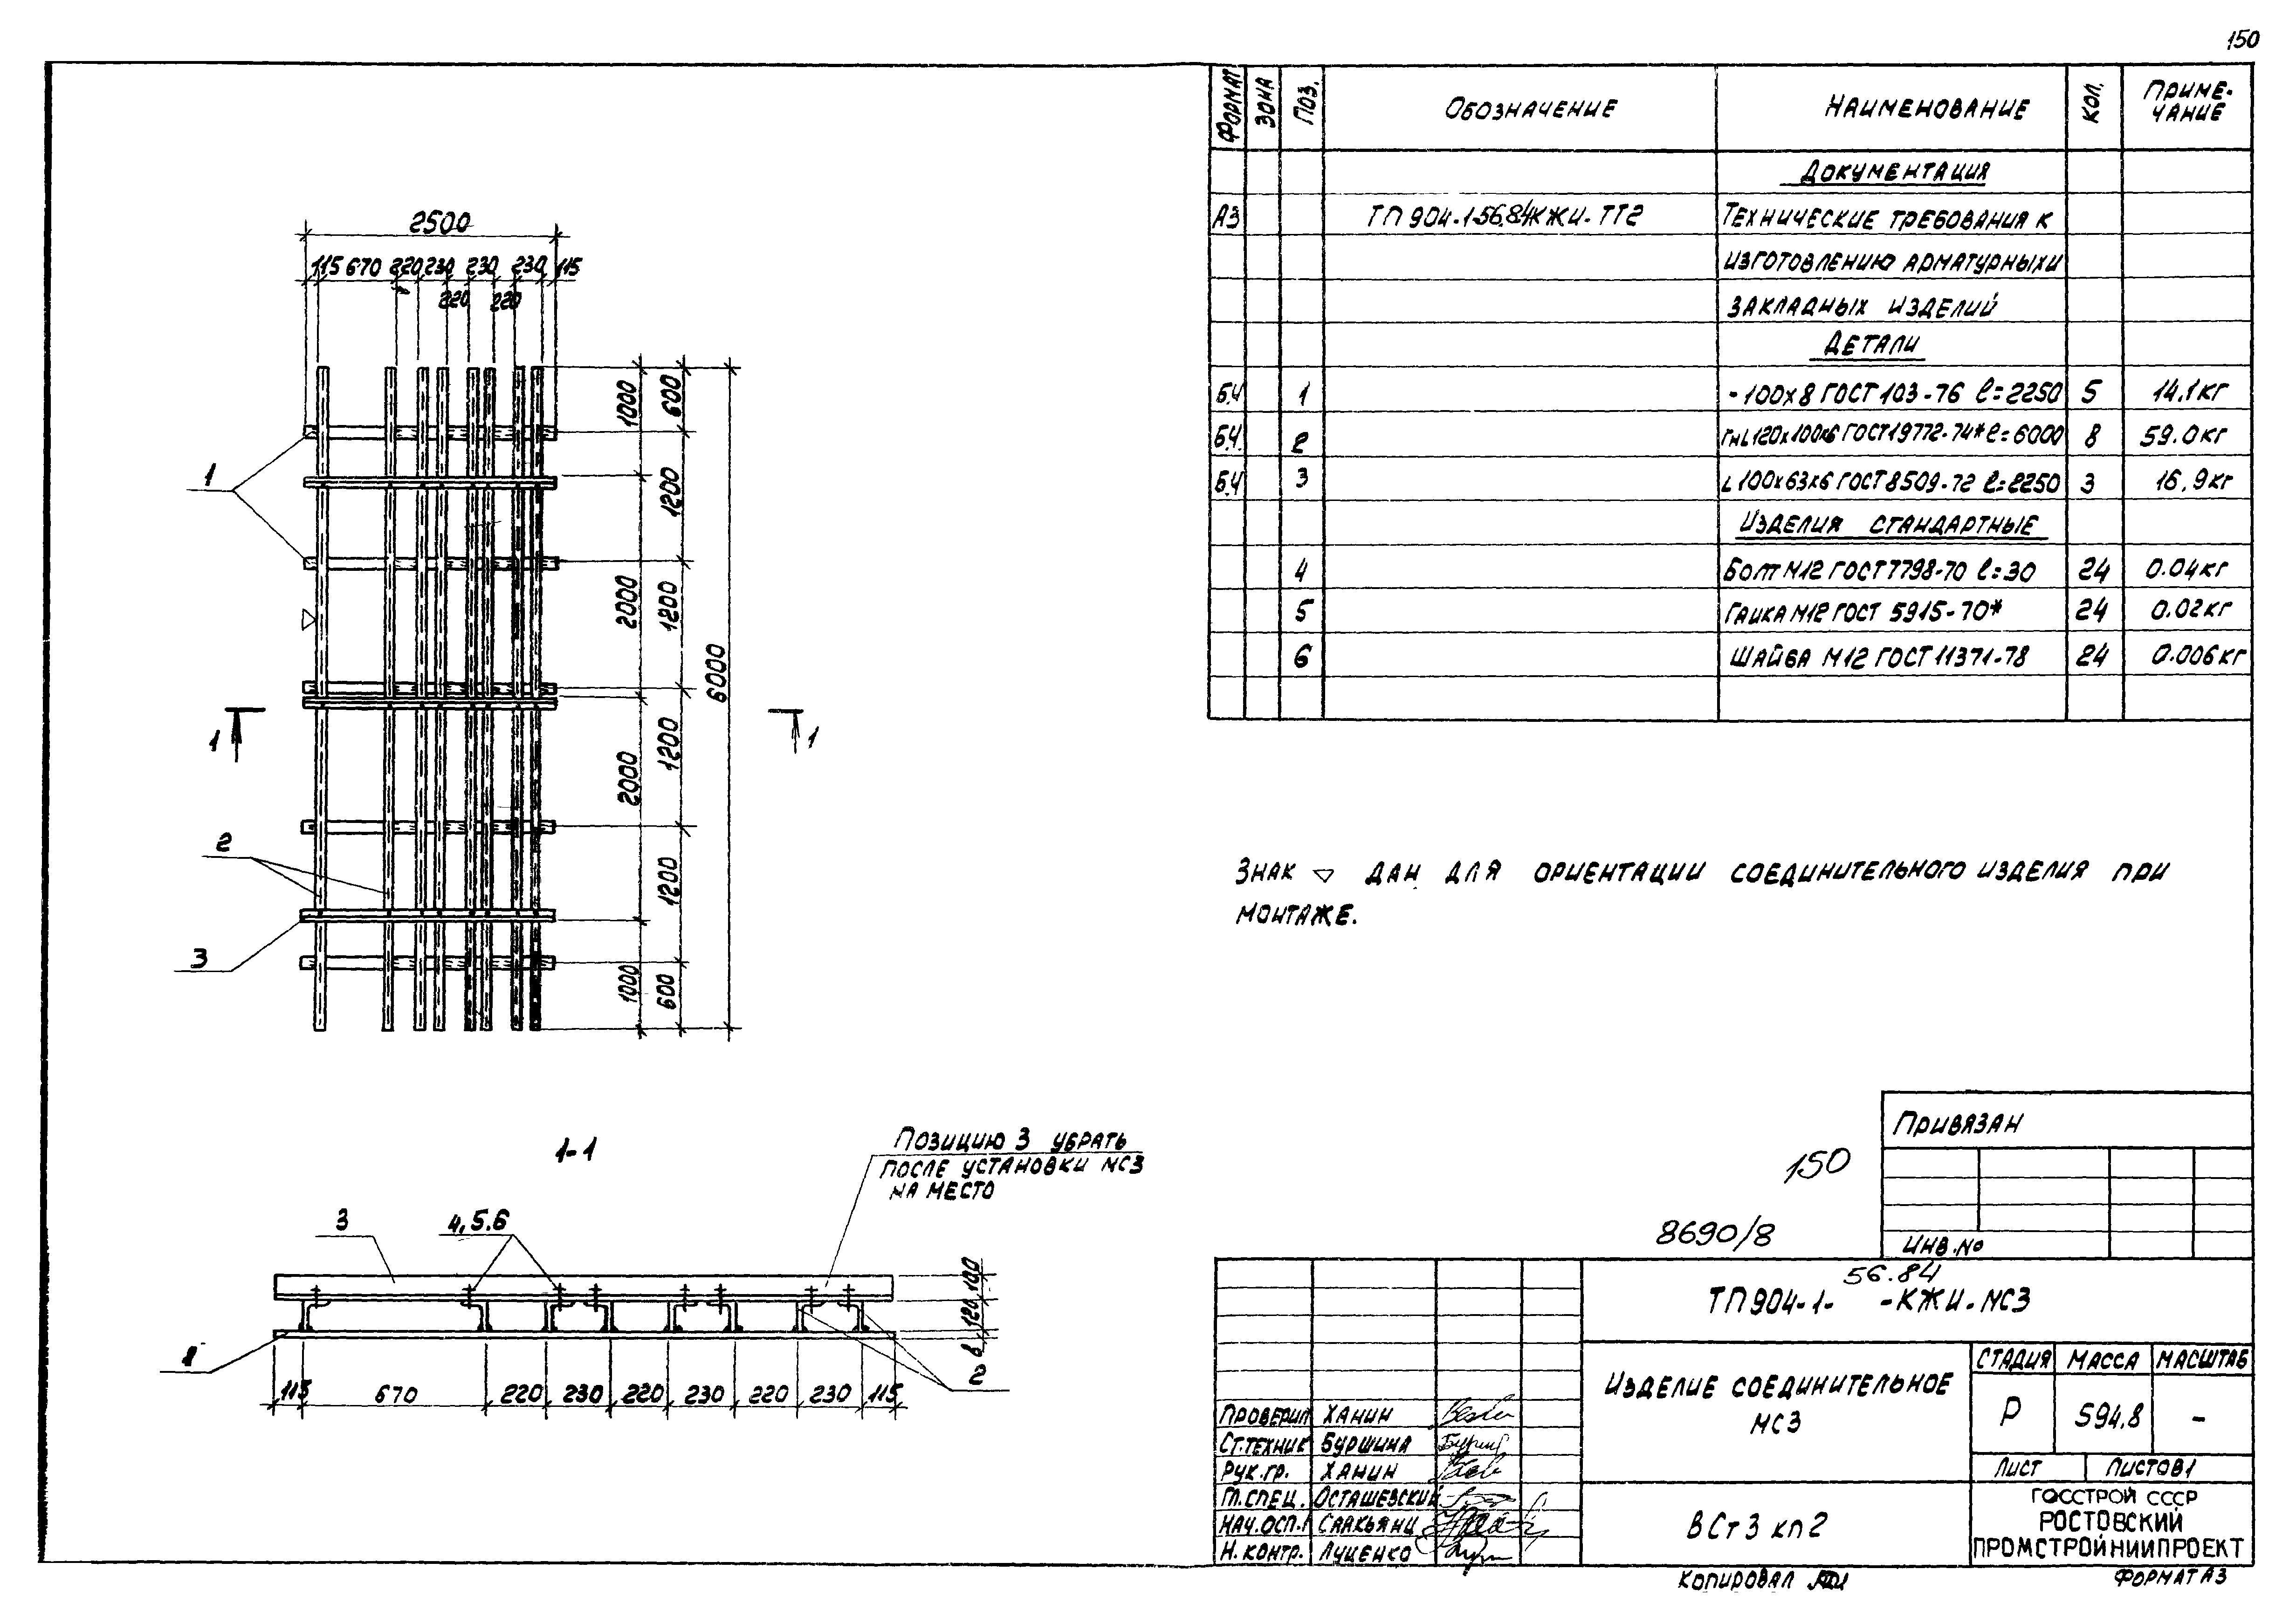 150
ФОРМАТ ЗОНА ПОЗ. ОБОЗНАЧЕНИЕ НАИМЕНОВАНИЕ КОЛ. ПРИМЕ-
ЧАНИЕ
ДОКУМЕНТАЦИЯ
А3 ТП 904-1-56.84КЖИ-ТТ2 ТЕХНИЧЕСКИЕ ТРЕБОВАНИЯ К
ИЗГОТОВЛЕНИЮ АРМАТУРНЫХИ
ЗАКЛАДНЫХ ИЗДЕЛИЙ
ДЕТАЛИ
Б.Ч 1 -100х8 ГОСТ 103-76 ℓ=2250 5 14,1кг
Б.Ч. 2 ГнL120х100х6 ГОСТ19772-74* ℓ=6000 8 59.0кг
Б.Ч 3 L 100х63х6 ГОСТ 8509-72 ℓ=2250 3 16,9кг
ИЗДЕЛИЯ СТАНДАРТНЫЕ
4 БОЛТ М12 ГОСТ 7798-70 ℓ=30 24 0.04кг
5 ГАЙКА М12 ГОСТ 5915-70* 24 0.02кг
6 ШАЙБА М12 ГОСТ 11371-78 24 0.006кг
2500
115 670 220 230 230 230 115
220 220
1000 600
1200
2000 1200
6000
2000 1200
1200
1000 600
1
1 1
2
3
ЗНАК ▽ ДАН ДЛЯ ОРИЕНТАЦИИ СОЕДИНИТЕЛЬНОГО ИЗДЕЛИЯ ПРИ
МОНТАЖЕ.
1-1
ПОЗИЦИЮ 3 УБРАТЬ
ПОСЛЕ УСТАНОВКИ МС3
НА МЕСТО
3 4,5.6
100
120
8
1 2
115 670 220 230 220 230 220 230 115
ПРИВЯЗАН
ИНВ.№
150
8690/8
56.84
ТП904-1- -КЖИ-МС3
ИЗДЕЛИЕ СОЕДИНИТЕЛЬНОЕ
МС3
СТАДИЯ МАССА МАСШТАБ
Р 594.8 -
ЛИСТ ЛИСТОВ1
ВСт3 кп2
ГОССТРОЙ СССР
РОСТОВСКИЙ
ПРОМСТРОЙНИИПРОЕКТ
ПРОВЕРИЛ ХАНИН
СТ.ТЕХНИК БУРШИНА
РУК.ГР. ХАНИН
ГЛ.СПЕЦ. ОСТАШЕВСКИЙ
НАЧ.ОСП-1 СААКЬЯНЦ
Н. КОНТР. ЛУЦЕНКО
КОПИРОВАЛ
ФОРМАТ А3